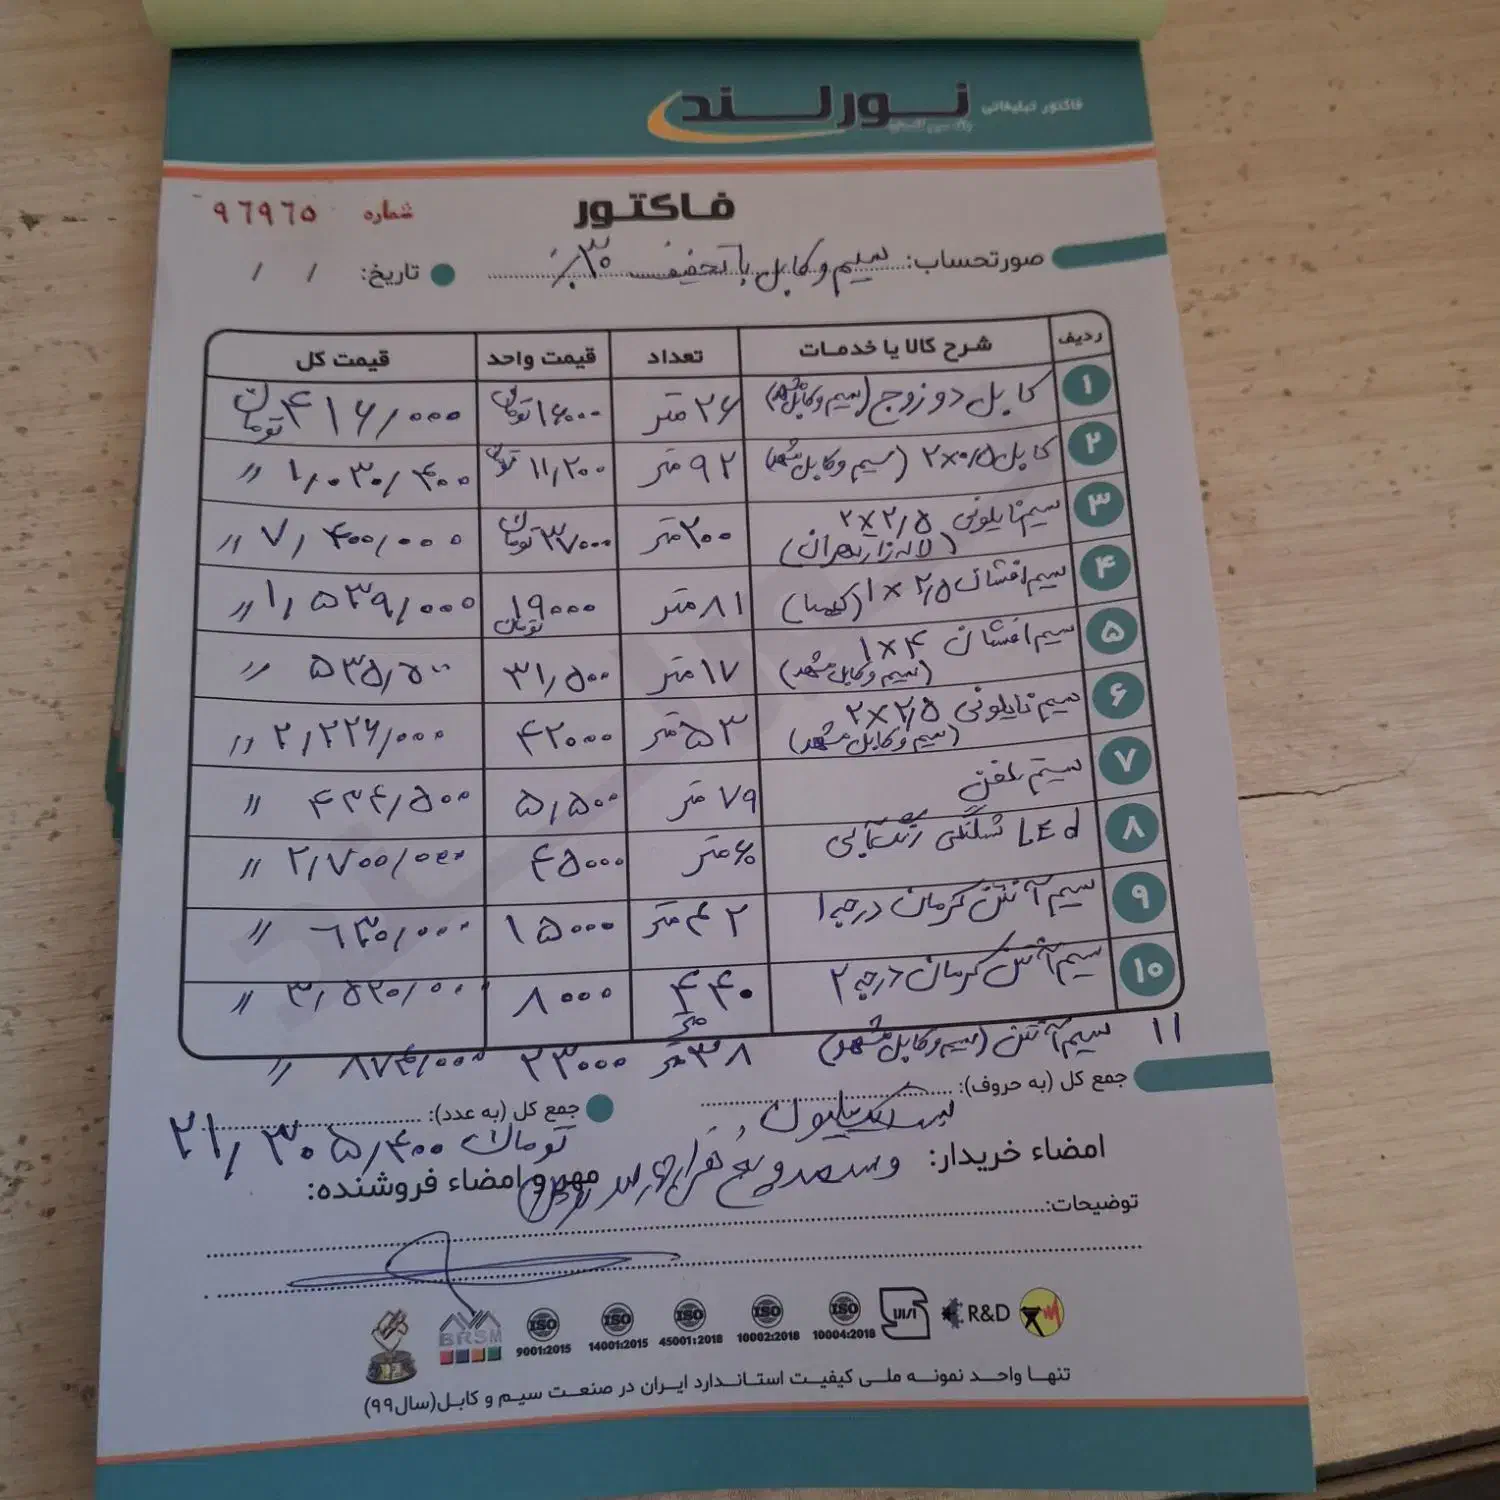 فاکتور تبلیغاتی نورلند
فاکتور
شماره ۹۶۹۶۵
صورتحساب: سیم و کابل با تخفیف ۳۰٪
تاریخ: / /
ردیف شرح کالا یا خدمات تعداد قیمت واحد قیمت کل
۱ کابل دو زوج (سیم و کابل مشهد) ۲۶ متر ۱۶۰۰۰ تومان ۴۱۶/۰۰۰ تومان
۲ کابل ۲×۰/۵ (سیم و کابل مشهد) ۹۲ متر ۱۱/۲۰۰ تومان ۱/۰۳۰/۴۰۰ "
۳ سیم نایلونی ۲×۲/۵ (لاله زار تهران) ۲۰۰ متر ۳۷۰۰۰ تومان ۷/۴۰۰/۰۰۰ "
۴ سیم افشان ۱×۲/۵ ۸۱ متر ۱۹۰۰۰ تومان ۱/۵۳۹/۰۰۰ "
۵ سیم افشان ۱×۴ (سیم و کابل مشهد) ۱۷ متر ۳۱/۵۰۰ ۵۳۵/۵۰۰ "
۶ سیم نایلونی ۲×۲/۵ (سیم و کابل مشهد) ۵۳ متر ۴۲۰۰۰ ۲/۲۲۶/۰۰۰ "
۷ سیم تلفن ۷۹ متر ۵/۵۰۰ ۴۳۴/۵۰۰ "
۸ LEd شلنگی رنگ آبی ۶۰ متر ۴۵۰۰۰ ۲/۷۰۰/۰۰۰ "
۹ سیم آنتن کرمان درجه ۱ ۴۲ متر ۱۵۰۰۰ ۶۳۰/۰۰۰ "
۱۰ سیم آنتن کرمان درجه ۲ ۴۴۰ متر ۸۰۰۰ ۳/۵۲۰/۰۰۰ "
۱۱ سیم آنتن (سیم و کابل مشهد) ۳۸ متر ۲۳۰۰۰ ۸۷۴/۰۰۰ "
جمع کل (به حروف): بیست و یک میلیون و
جمع کل (به عدد): ۲۱/۳۰۵/۴۰۰ تومان
امضاء خریدار: و سیصد و پنج هزار چهارصد تومان
مهر و امضاء فروشنده:
توضیحات:
BRSM
ISO 9001:2015
ISO 14001:2015
ISO 45001:2018
ISO 10002:2018
ISO 10004:2018
R&D
تنها واحد نمونه ملی کیفیت استاندارد ایران در صنعت سیم و کابل (سال ۹۹)